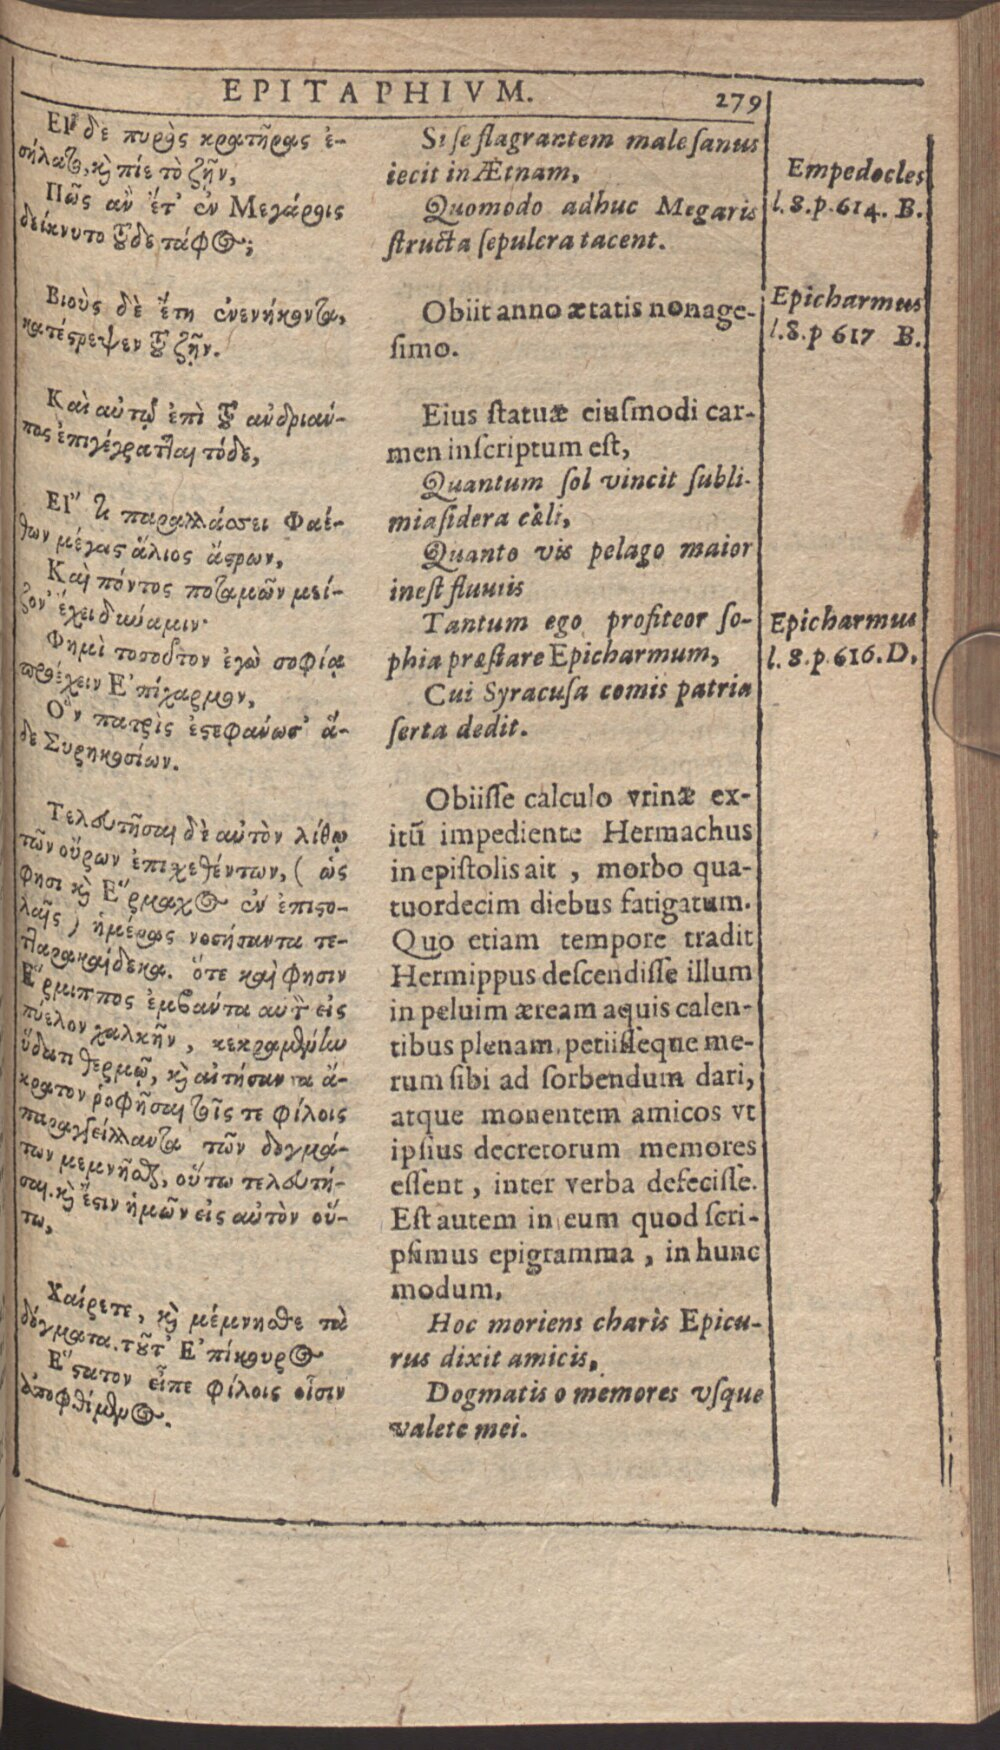 EPITAPHIVM. 279
Εἰ δὲ πυρὸς κρατῆρας ἐ-
σήλατο, καὶ πίε τὸ ζῆν,
Πῶς ἂν ἔτ' ἐν Μεγάροις
δείκνυτο τοῦδε τάφος;
Βιοὺς δὲ ἔτη ἐνενήκοντα,
κατέστρεψεν τὸ ζῆν.
Καὶ αὐτῷ ἐπὶ τοῦ ἀνδριάν-
τος ἐπιγέγραπται τόδε,
Εἴ τι παραλλάσσει Φαέ-
θων μέγας ἅλιος ἄστρων,
Καὶ πόντος ποταμῶν μεί-
ζον' ἔχει δύναμιν·
Φημὶ τοσοῦτον ἐγὼ σοφίᾳ
προέχειν Ἐπίχαρμον,
Ὃν πατρὶς ἐστεφάνωσ' ἅ-
δε Συρηκοσίων.
Τελευτῆσαι δὲ αὐτὸν λίθῳ
τῶν οὔρων ἐπισχεθέντων, ( ὥς
φησι καὶ Ἕρμαχος ἐν ἐπιστο-
λαῖς ) ἡμέρας νοσήσαντα τε-
τταρακαίδεκα. ὅτε καὶ φησιν
Ἕρμιππος ἐμβάντα αὐτὸν εἰς
πύελον χαλκῆν, κεκραμένην
ὕδατι θερμῷ, καὶ αἰτήσαντα ἄ-
κρατον ῥοφῆσαι τοῖς τε φίλοις
παραγγείλαντα τῶν δογμά-
των μεμνῆσθαι, οὕτω τελευτῆ-
σαι. καὶ ἔστιν ἡμῶν εἰς αὐτὸν οὕ-
τω,
Χαίρετε, καὶ μέμνησθε τὰ
δόγματα. τοῦτ' Ἐπίκουρος
Ὕστατον εἶπε φίλοις οἷσιν
ἀποφθίμενος.
Si se flagrantem malesanus
iecit in Ætnam,
Quomodo adhuc Megaris
structa sepulcra tacent.
Obiit anno ætatis nonage-
simo.
Eius statuæ eiusmodi car-
men inscriptum est,
Quantum sol vincit subli-
mia sidera cæli,
Quanto vis pelago maior
inest fluuiis
Tantum ego profiteor so-
phia præstare Epicharmum,
Cui Syracusa comis patria
serta dedit.
Obiisse calculo vrinæ ex-
itũ impediente Hermachus
in epistolis ait , morbo qua-
tuordecim diebus fatigatum.
Quo etiam tempore tradit
Hermippus descendisse illum
in peluim æream aquis calen-
tibus plenam, petiisseque me-
rum sibi ad sorbendum dari,
atque monentem amicos vt
ipsius decretorum memores
essent , inter verba defecisse.
Est autem in eum quod scri-
psimus epigramma , in hunc
modum,
Hoc moriens charis Epicu-
rus dixit amicis,
Dogmatis o memores vsque
valete mei.
Empedocles
l. 8. p. 614. B.
Epicharmus
l. 8. p 617 B.
Epicharmus
l. 8. p. 616. D,